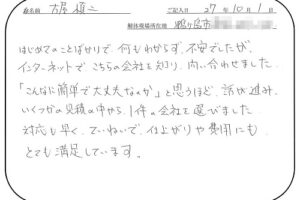 お名前 古屋 穣二 ご記入日 27年10月1日
解体現場所在地 鶴ヶ島市
はじめてのことばかりで、何もわからず、不安でしたが、
インターネットで こちらの会社を知り、問い合わせました。
「こんなに簡単で大丈夫なのか」と思うほど、話が進み、
いくつかの見積の中から、1件の会社を選びました。
対応も早く、ていねいで、仕上がりや費用にも、
とても満足しています。